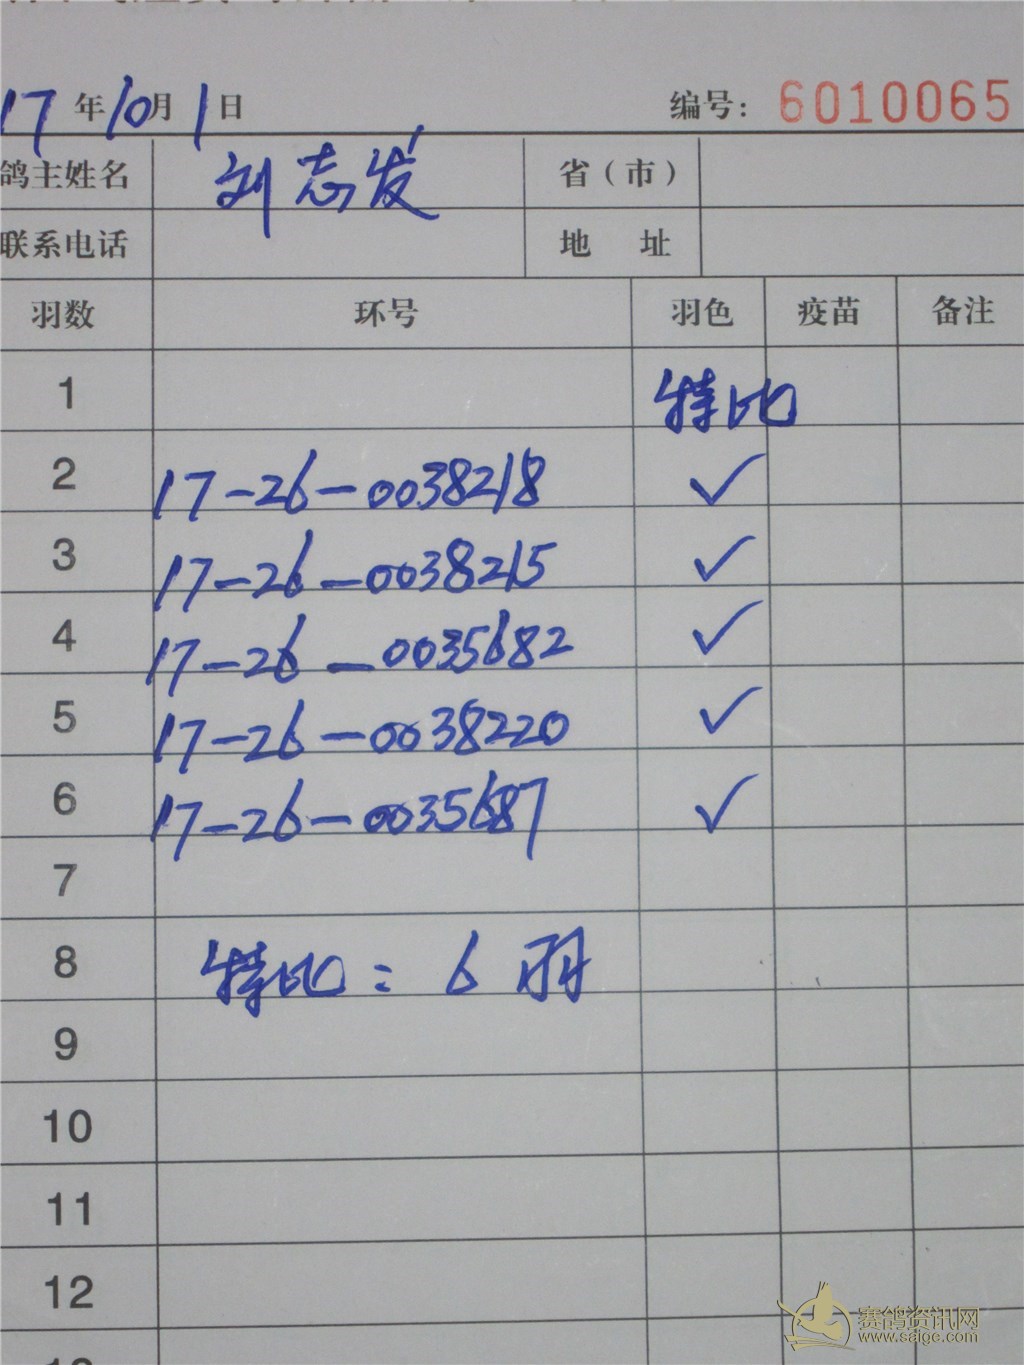 17年10月1日 编号: 6010065
鸽主姓名 刘志发 省(市)
联系电话 地 址
羽数 环号 羽色 疫苗 备注
1 特比
2 17-26-0038218 ✓
3 17-26-0038215 ✓
4 17-26-0035682 ✓
5 17-26-0038220 ✓
6 17-26-0035687 ✓
7
8 特比: 6羽
9
10
11
12
赛鸽资讯网
www.saige.com